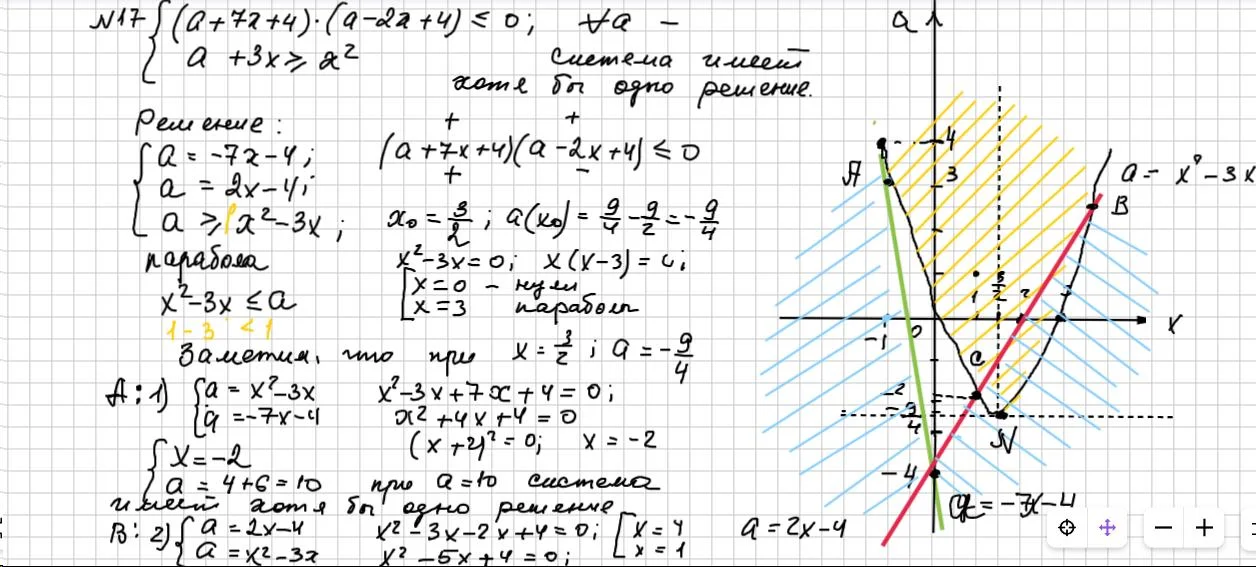 N17 { (a+7x+4)·(a-2x+4) ≤ 0; ∀a -
a +3x ≥ x²
система имеет
хотя бы одно решение.
Решение:
+ +
{ a = -7x-4; (a+7x+4)(a-2x+4) ≤ 0
+ -
a = 2x-4;
a ≥ x²-3x; x₀ = 3/2; a(x₀) = 9/4 - 9/2 = -9/4
парабола x²-3x=0; x(x-3)=0;
x²-3x ≤ a [ x=0 - нули
x=3 параболы
1-3 < 1
Заметим, что при x = 3/2; a = -9/4
A: 1) { a = x²-3x x²-3x+7x+4=0;
a = -7x-4 x²+4x+4=0
(x+2)²=0; x=-2
{ x=-2
a = 4+6=10 при a=10 система
имеет хотя бы одно решение
B: 2) { a = 2x-4 x²-3x-2x+4=0; [ x=4
a = x²-3x x²-5x+4=0; x=1
a
4
3
A
a = x²-3x
B
1
3/2
2
-1
0
x
C
-2
-9/4
N
-4
a = -7x-4
a = 2x-4